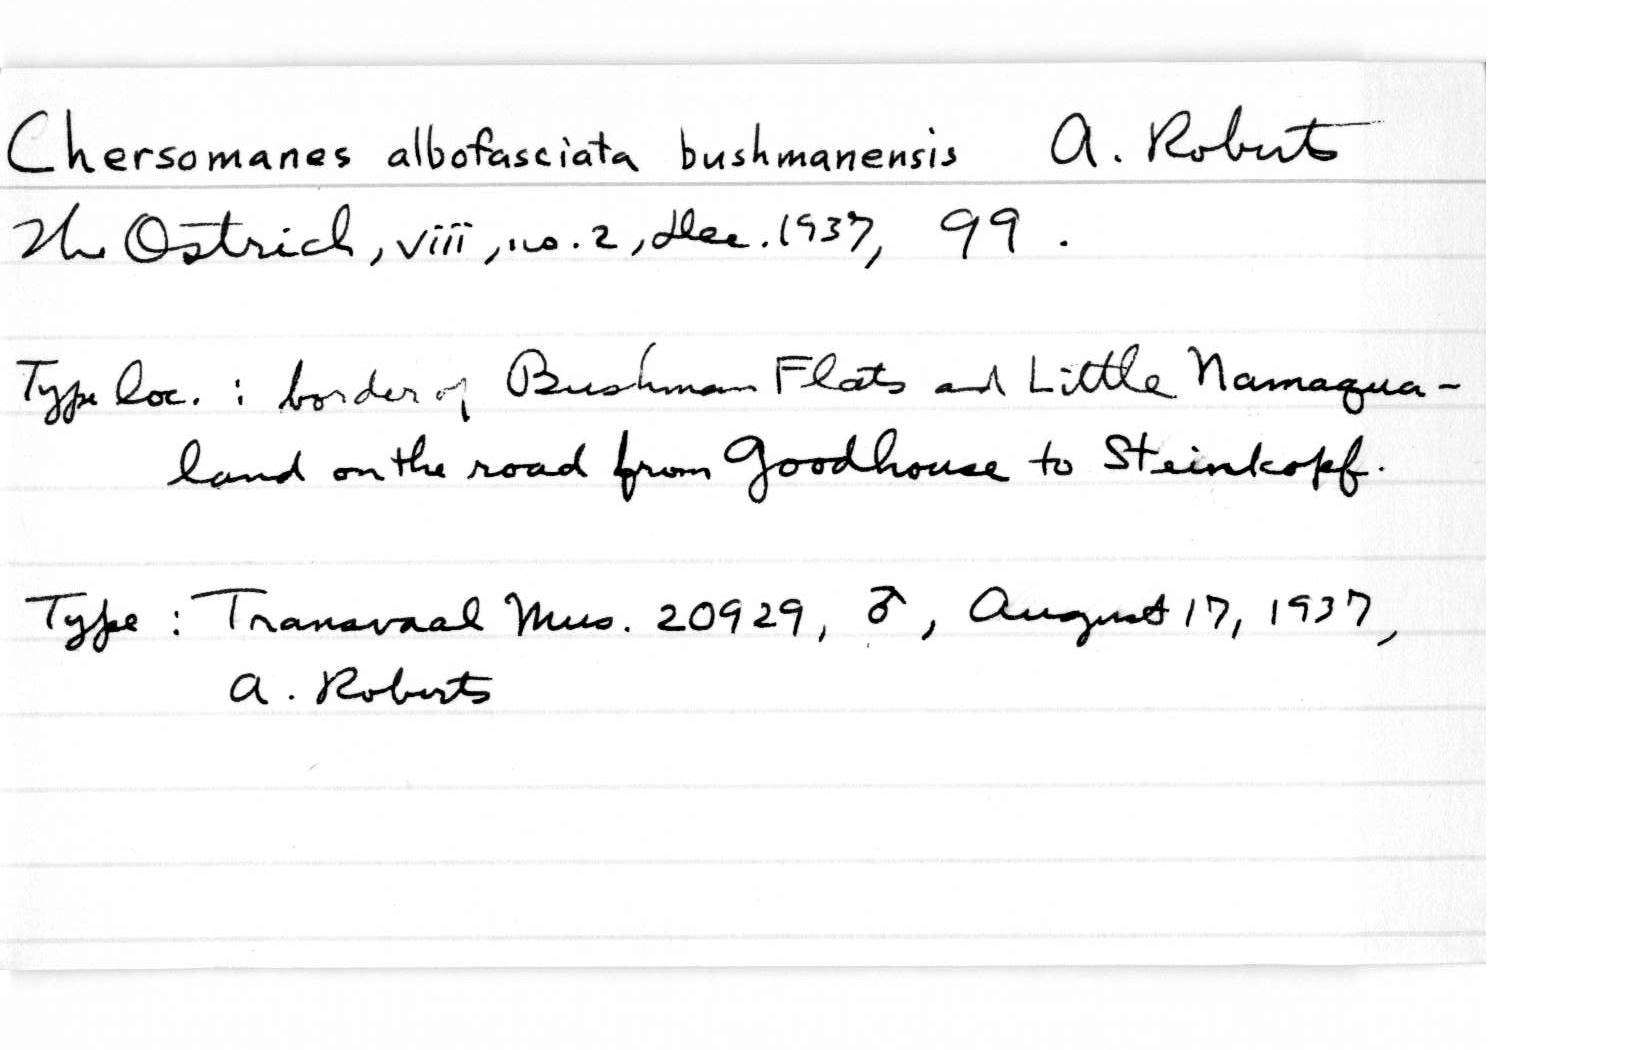 Chersomanes albofasciata bushmanensis A. Roberts
The Ostrich, viii, no. 2, Dec. 1937, 99.
Type loc. : border of Bushman Flats and Little Namaqua-
land on the road from Goodhouse to Steinkopf.
Type : Transvaal Mus. 20929, ♂, August 17, 1937,
A. Roberts